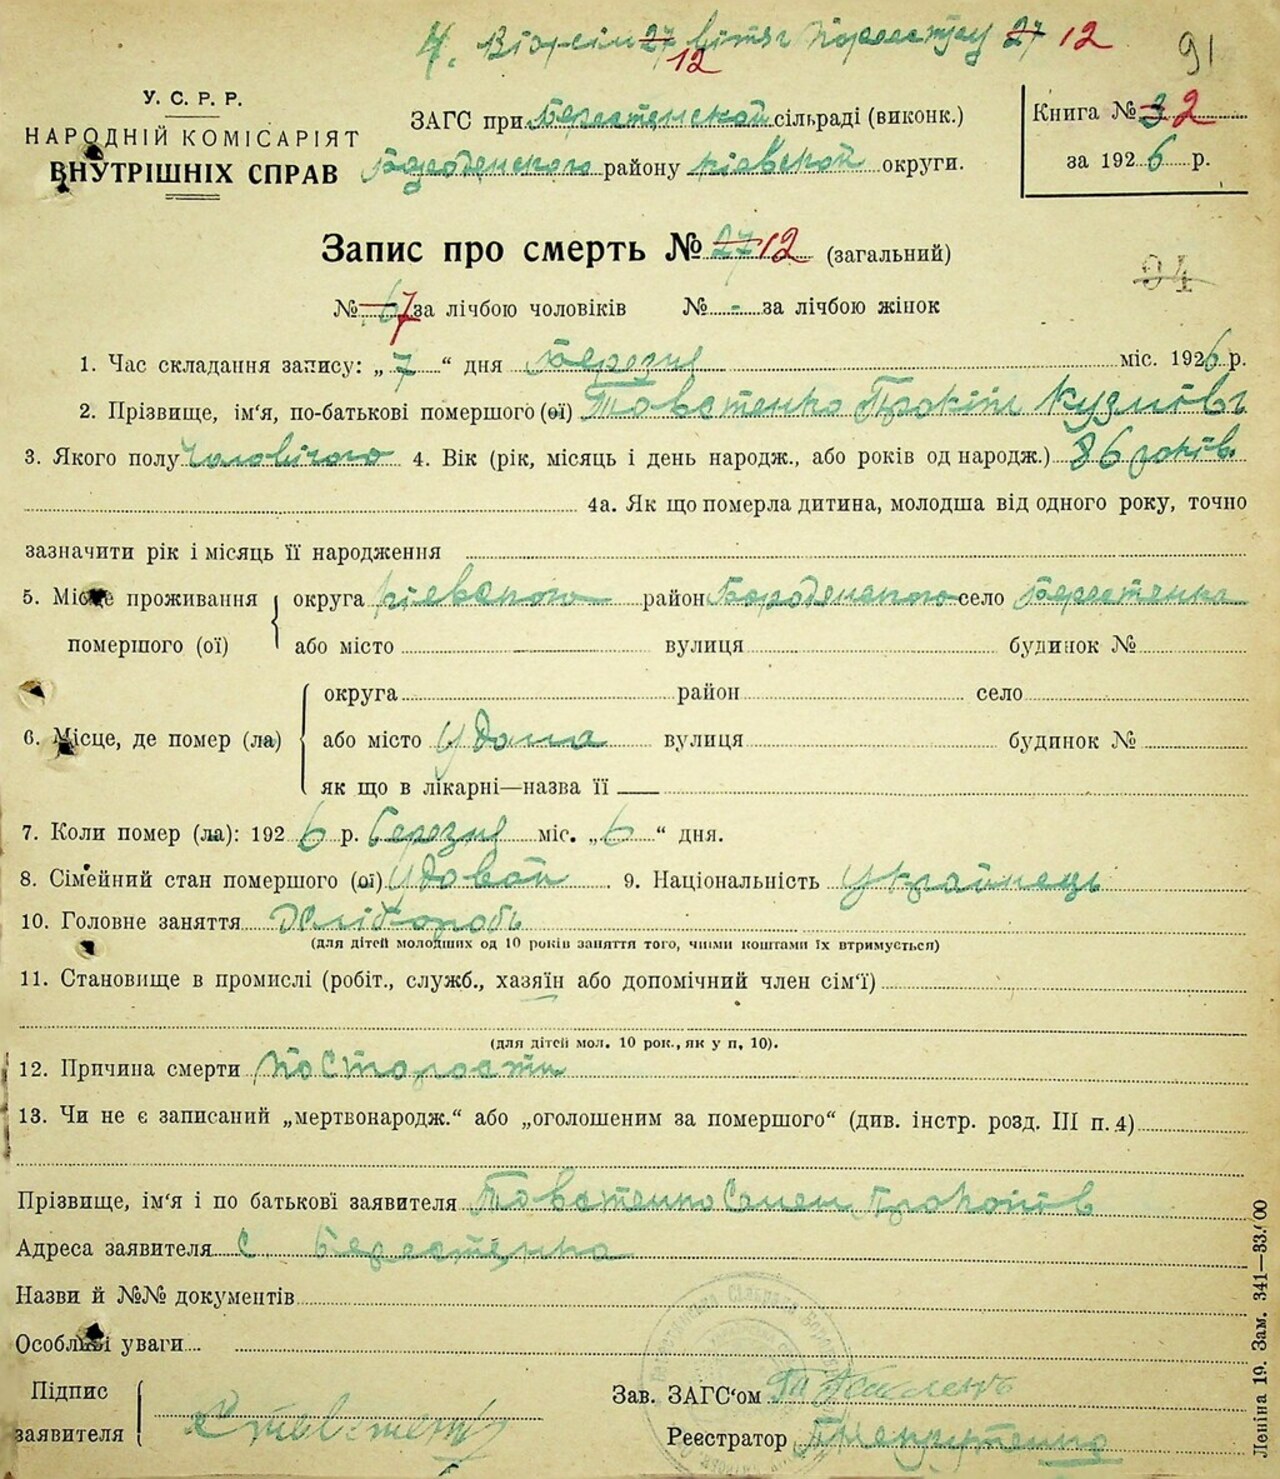 27 12 27 12
91
У. С. Р. Р.
НАРОДНІЙ КОМІСАРІЯТ
ВНУТРІШНІХ СПРАВ
ЗАГС при Берестенской сільраді (виконк.)
району Кіевской округи.
Книга № 3 2
за 1926 р.
Запис про смерть № 27 12 (загальний)
94
№ 6 7 за лічбою чоловіків № - за лічбою жінок
1. Час складання запису: „7“ дня Березня міс. 1926 р.
2. Прізвище, ім'я, по-батькові помершого (ої) Товстенко Прокіп Кузмов
3. Якого полу Чоловічого 4. Вік (рік, місяць і день народж., або років од народж.) 86 років
4а. Як що померла дитина, молодша від одного року, точно
зазначити рік і місяць її народження
5. Місце проживання помершого (ої) округа Кіевского район Бородянского село Берестенка
або місто вулиця будинок №
6. Місце, де помер (ла) округа район село
або місто у дома вулиця будинок №
як що в лікарні—назва її
7. Коли помер (ла): 1926 р. Березня міс. „6“ дня.
8. Сімейний стан помершого (ої) удовой 9. Національність Українець
10. Головне заняття Хлібороб
(для дітей молодших од 10 років заняття того, чиїми коштами їх втримується)
11. Становище в промислі (робіт., служб., хазяїн або допомічний член сім'ї)
(для дітей мол. 10 рок., як у п. 10).
12. Причина смерти по старости
13. Чи не є записаний „мертвонародж.“ або „оголошеним за помершого“ (див. інстр. розд. III п. 4)
Прізвище, ім'я і по батькові заявителя Товстенко Семен Прокопов
Адреса заявителя с. Берестенка
Назви й №№ документів
Особливі уваги
Підпис заявителя
Зав. ЗАГС'ом
Реєстратор
Леніна 19. Зам. 341—33.000